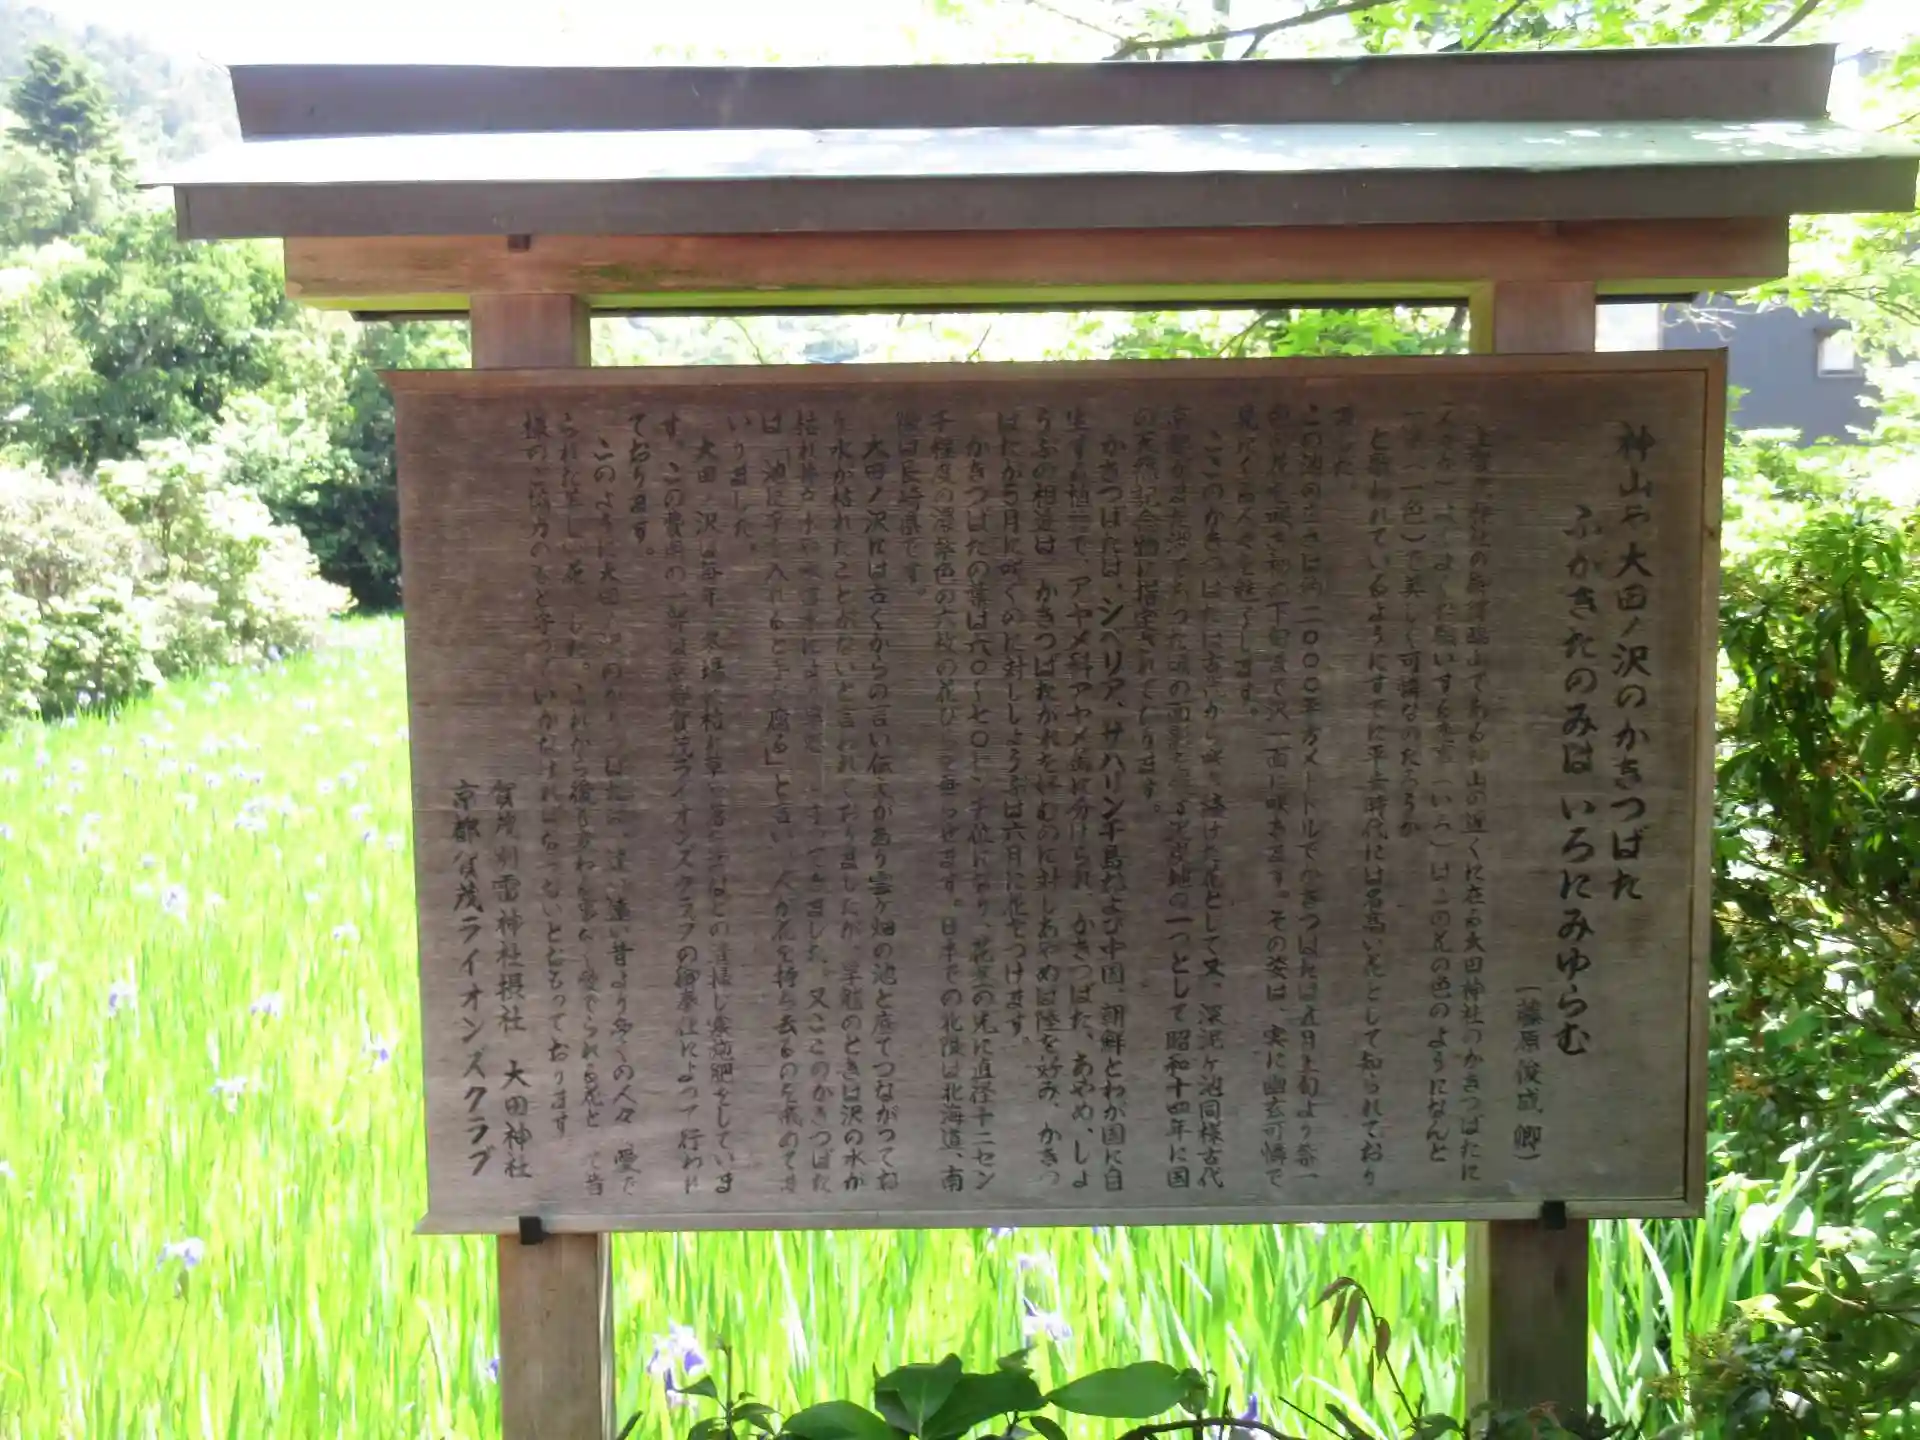 神山や大田ノ沢のかきつばた
ふかきたのみはいろにみゆらむ
(藤原俊成卿)
上賀茂神社の 山である神山の近くに在る大田神社のかきつばたに
一 色)で美しく可憐なのだろうか
と歌われているようにすでに平安時代には名高い花として知られており
ました。
この沢の広さは約二〇〇〇平方メートルでかきつばたは五月上旬より第一
下旬まで沢一面に咲きます。その姿は、実に幽玄可憐で
見にくる人々を魅了します。
ここのかきつばたは古代から咲き続けた花として又、深泥ヶ池同様古代
京都がまだ沼 であった頃の面影を 地の一つとして昭和十四年に国
の天然記念物に指定されております。
かきつばたは、シベリア、サハリン千島および中国、朝鮮とわが国に自
生する植物で、アヤメ科アヤメ属に分けられ、かきつばた、あやめ、しょ
うぶの相違は、かきつばたが水を好むのに対しあやめは陸を好み、かきつ
ばたが五月に咲くのに対ししょうぶは六月に花をつけます。
かきつばたの葉は六〇〜七〇センチ位になり、花茎の先に直径十二セン
チ程度の濃紫色の六枚の花びらを毎 せます。日本での北限は北海道、南
限は長崎県です。
大田ノ沢には古くからの言い伝えがあり雲ヶ畑の池と底でつながってお
り水が枯れたことがないと言われておりましたが、旱魃のときは沢の水が
枯れ た。又ここのかきつばた
は「池に手を入れると手が腐る」と言い、人が花を持ち去るのを戒めてま
いりました。
大田ノ沢は毎年、冬場に枯れ草 などの清掃し寒施肥をしていま
す。この費用の一部は京都賀茂ライオンズクラブの御奉仕によって行われ
ております。
このように大田ノ沢のかきつばたは、遠い遠い昔より多くの人々に愛で
られた美しい花でした。これから後も末ながく愛でられる花と
様のご協力のもと守っていかなければならないとおもっております
賀茂別雷神社摂社 大田神社
京都賀茂ライオンズクラブ